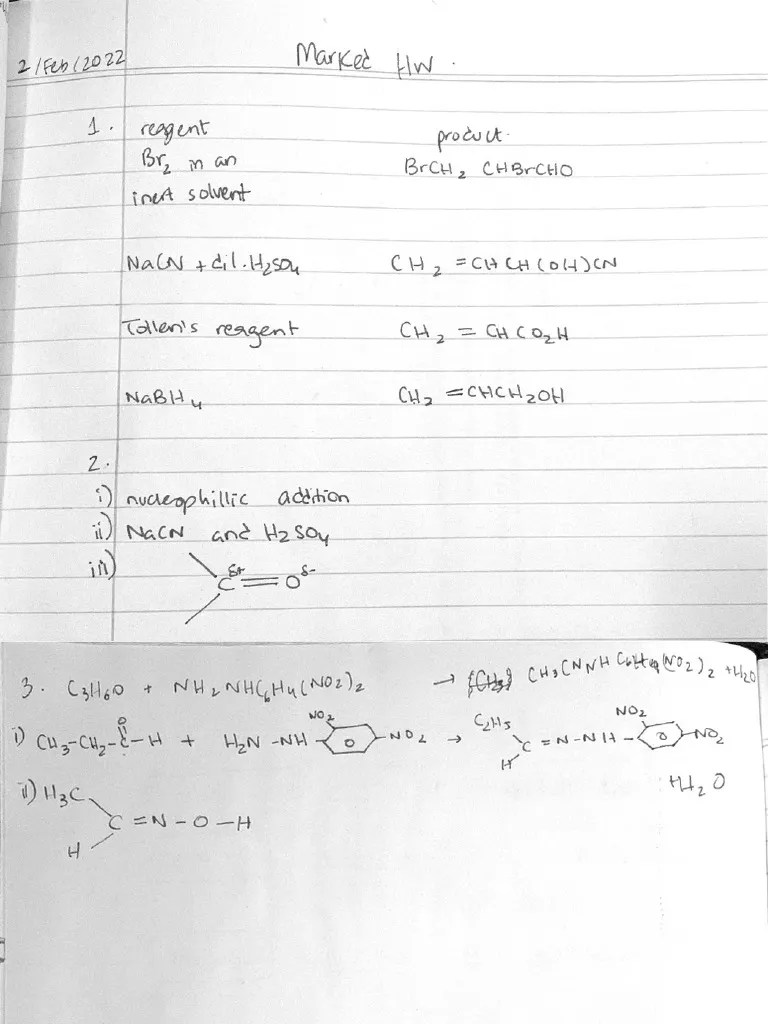 2/Feb/2022 Marked HW.
1. reagent product.
Br2 in an BrCH2 CHBrCHO
inert solvent
NaCN + dil. H2SO4 CH2 = CH CH(OH)CN
Tollen's reagent CH2 = CHCO2H
NaBH4 CH2 = CHCH2OH
2.
i) nucleophillic addition
ii) NaCN and H2SO4
iii) C δ+ = O δ-
3. C3H6O + NH2NHC6H4(NO2)2 → CH3CNNH C6H4(NO2)2 + H2O
i) CH3-CH2-C-H + H2N-NH NO2 -NO2 → C2H5 C=N-NH- NO2 -NO2
O H + H2O
ii) H3C
C=N-O-H
H